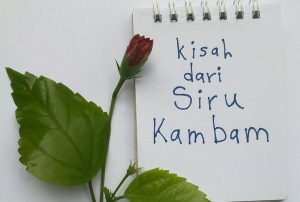 kisah
dari
Siru
Kambam